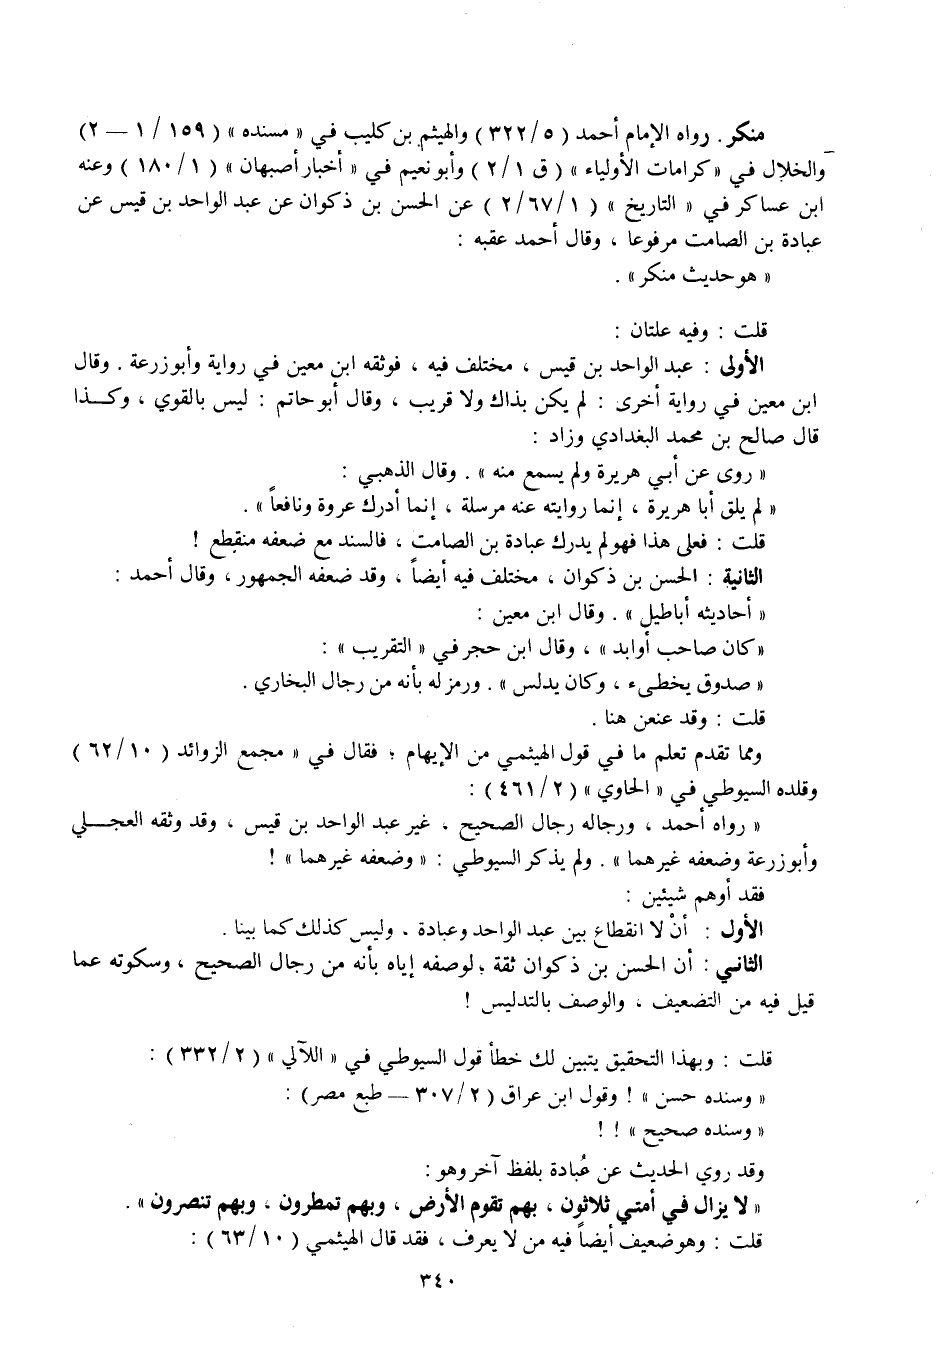 منكر . رواه الإمام أحمد ( ٥/ ٣٢٢ ) والهيثم بن كليب في « مسنده » ( ١٥٩ / ١ — ٢ )
والخلال في « كرامات الأولياء » ( ق ١/ ٢ ) وأبو نعيم في « أخبار أصبهان » ( ١/ ١٨٠ ) وعنه
ابن عساكر في « التاريخ » ( ١/ ٦٧/ ٢ ) عن الحسن بن ذكوان عن عبد الواحد بن قيس عن
عبادة بن الصامت مرفوعا ، وقال أحمد عقبه :
« هو حديث منكر » .
قلت : وفيه علتان :
الأولى : عبد الواحد بن قيس ، مختلف فيه ، فوثقه ابن معين في رواية وأبو زرعة . وقال
ابن معين في رواية أخرى : لم يكن بذاك ولا قريب ، وقال أبو حاتم : ليس بالقوي ، وكـــذا
قال صالح بن محمد البغدادي وزاد :
« روى عن أبي هريرة ولم يسمع منه » . وقال الذهبي :
« لم يلق أبا هريرة ، إنما روايته عنه مرسلة ، إنما أدرك عروة ونافعاً » .
قلت : فعلى هذا فهو لم يدرك عبادة بن الصامت ، فالسند مع ضعفه منقطع !
الثانية : الحسن بن ذكوان ، مختلف فيه أيضاً ، وقد ضعفه الجمهور ، وقال أحمد :
« أحاديثه أباطيل » . وقال ابن معين :
« كان صاحب أوابد » ، وقال ابن حجر في « التقريب » :
« صدوق يخطىء ، وكان يدلس » . ورمز له بأنه من رجال البخاري .
قلت : وقد عنعن هنا .
ومما تقدم تعلم ما في قول الهيثمي من الإيهام ؛ فقال في « مجمع الزوائد ( ١٠/ ٦٢ )
وقلده السيوطي في « الحاوي » ( ٢/ ٤٦١ ) :
« رواه أحمد ، ورجاله رجال الصحيح ، غير عبد الواحد بن قيس ، وقد وثقه العجـــلي
وأبو زرعة وضعفه غيرهما » . ولم يذكر السيوطي : « وضعفه غيرهما » !
فقد أوهم شيئين :
الأول : أنْ لا انقطاع بين عبد الواحد وعبادة . وليس كذلك كما بينا .
الثاني : أن الحسن بن ذكوان ثقة ؛ لوصفه إياه بأنه من رجال الصحيح ، وسكوته عما
قيل فيه من التضعيف ، والوصف بالتدليس !
قلت : وبهذا التحقيق يتبين لك خطأ قول السيوطي في « اللآلي » ( ٢/ ٣٣٢ ) :
« وسنده حسن » ! وقول ابن عراق ( ٢/ ٣٠٧ — طبع مصر ) :
« وسنده صحيح » ! !
وقد روي الحديث عن عُبادة بلفظ آخر وهو :
« لا يزال في أمتي ثلاثون ، بهم تقوم الأرض ، وبهم تمطرون ، وبهم تنصرون » .
قلت : وهو ضعيف أيضاً فيه من لا يعرف ، فقد قال الهيثمي ( ١٠/ ٦٣ ) :
٣٤٠